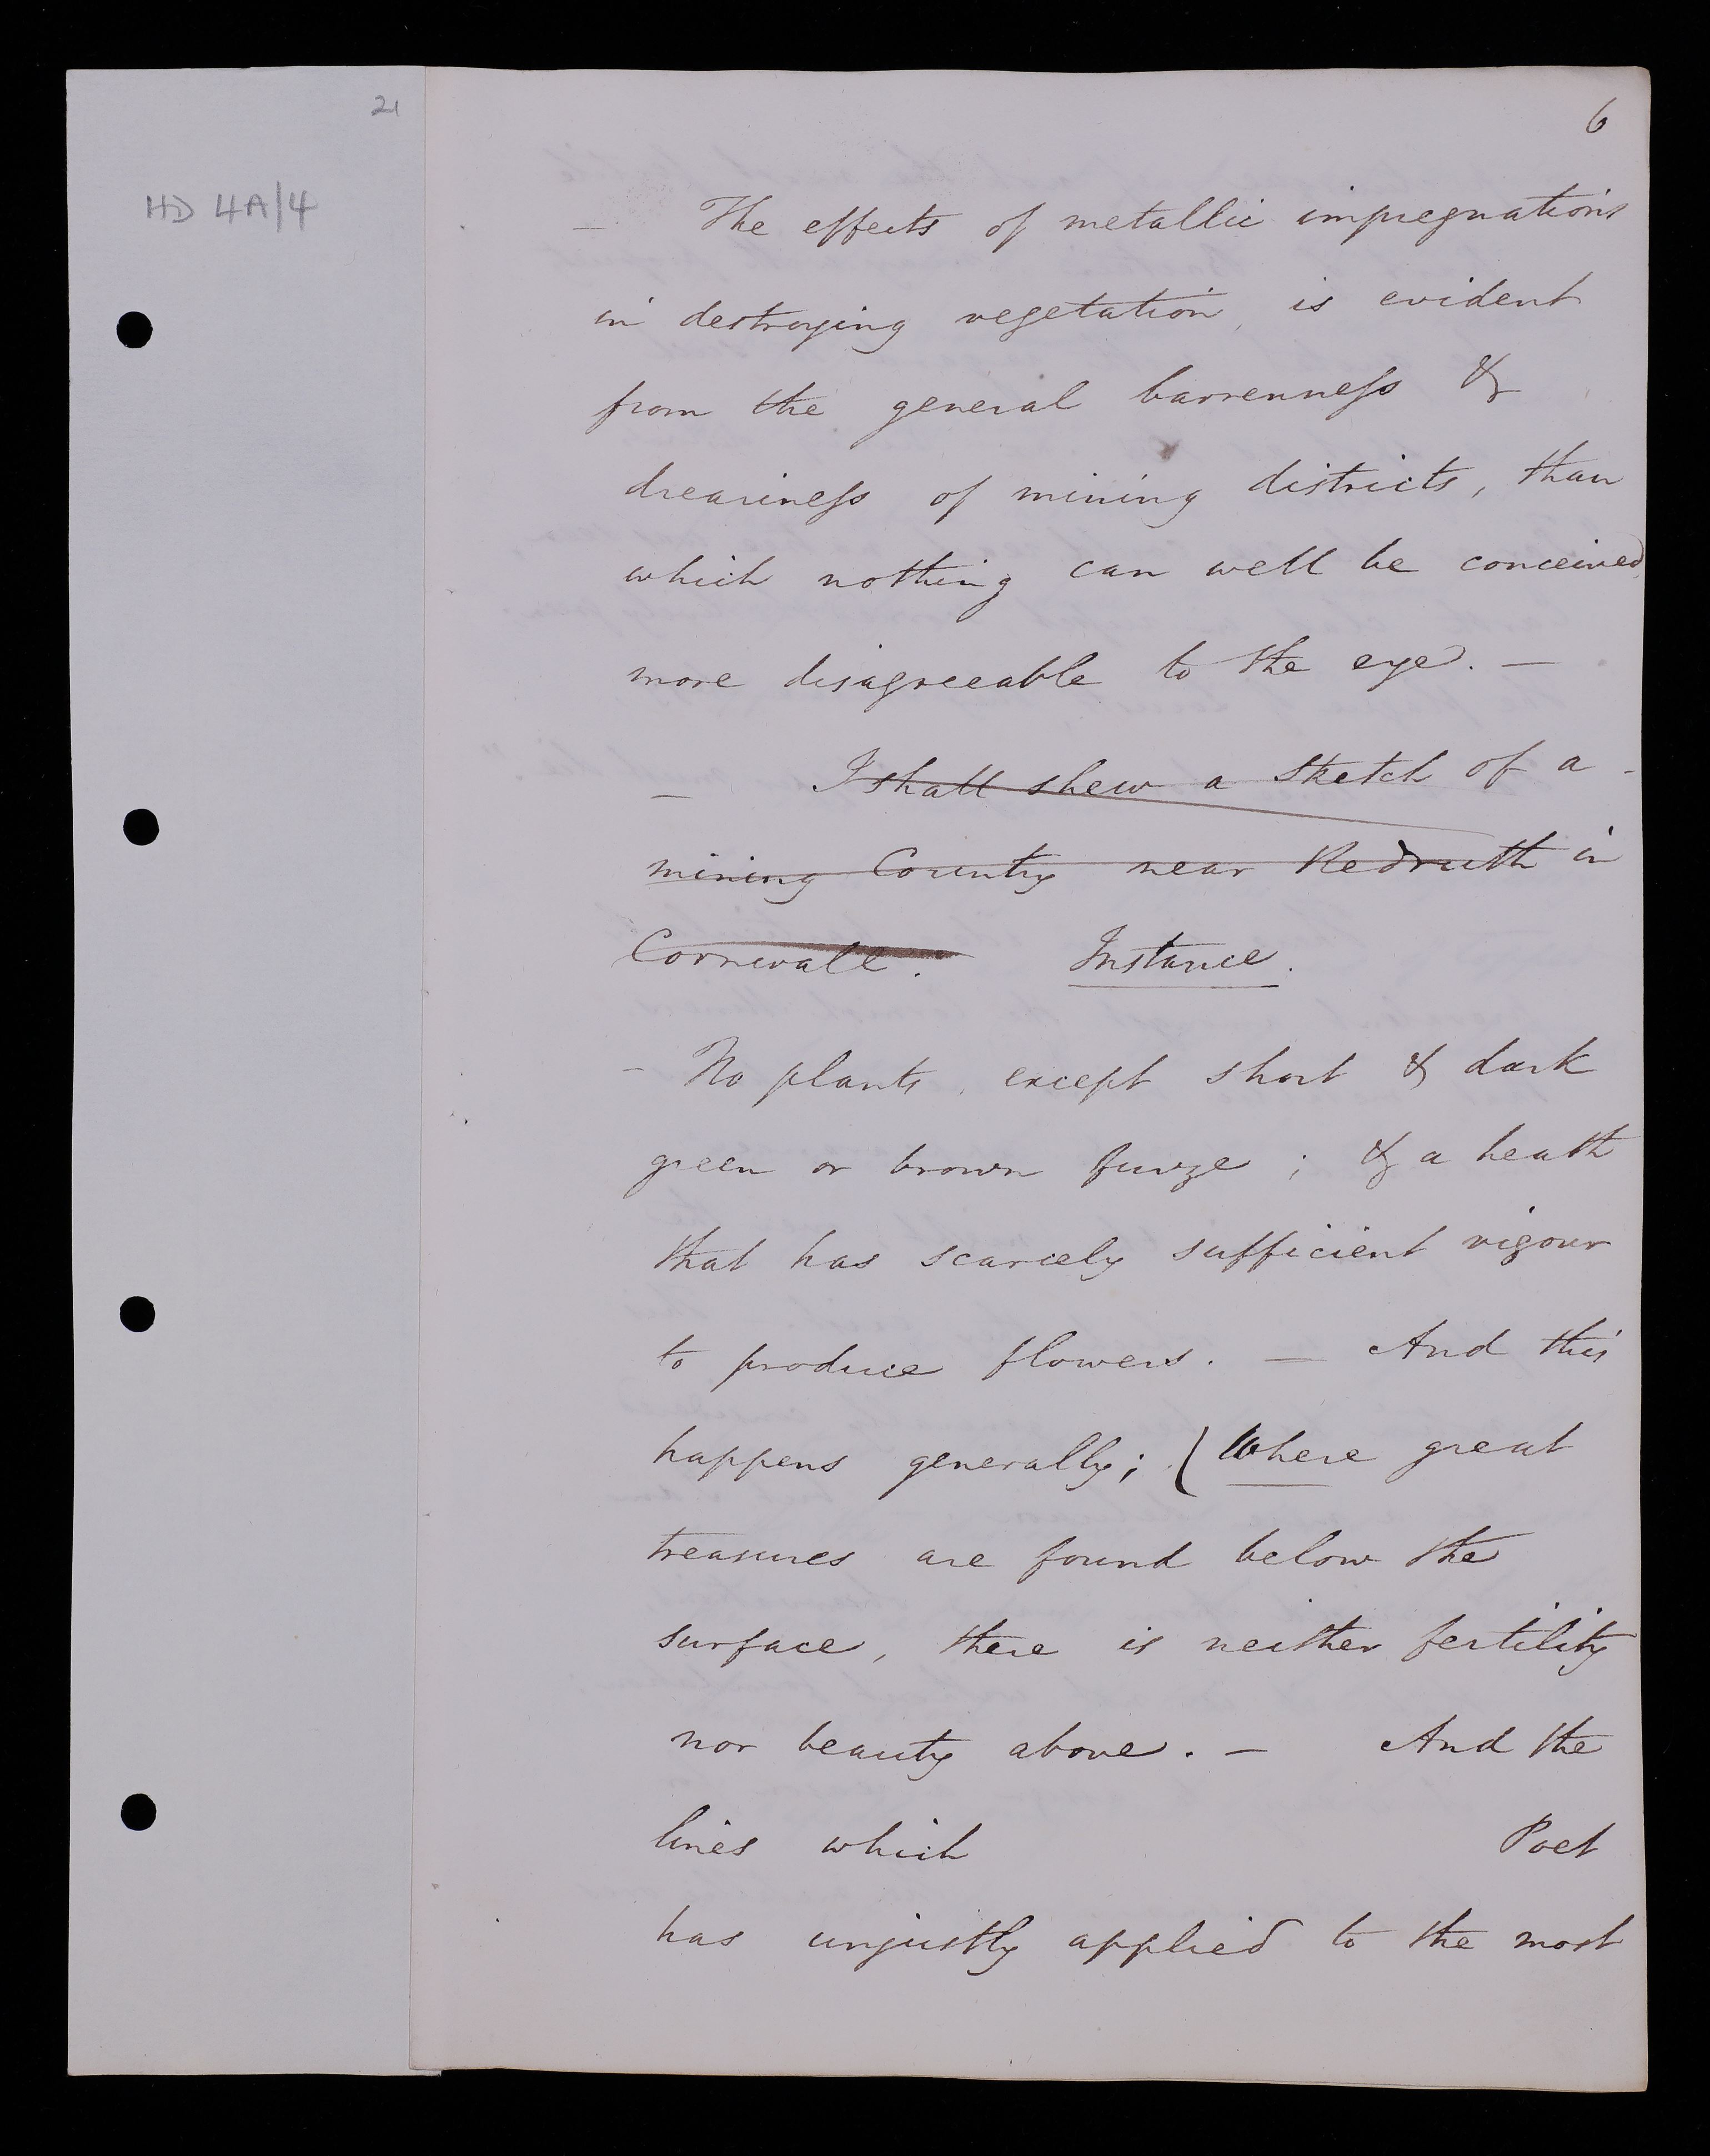 21
6
HD 4A/4
— The effects of metallic impregnations
in destroying vegetation, is evident
from the general barrenness &
dreariness of mining districts, than
which nothing can well be conceived
more disagreeable to the eye. —
— I shall shew a sketch of a -
mining Country near Redruth in
Cornwall. Instance.
- No plants, except short & dark
green or brown furze; & a heath
that has scarcely sufficient vigour
to produce flowers. — And this
happens generally; (Where great
treasures are found below the
surface, there is neither fertility
nor beauty above. — And the
lines which Poet
has unjustly applied to the most